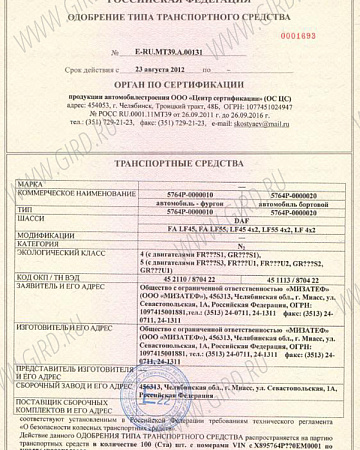 РОССИЙСКАЯ ФЕДЕРАЦИЯ
ОДОБРЕНИЕ ТИПА ТРАНСПОРТНОГО СРЕДСТВА
0001693
№ E-RU.MT39.A.00131
Срок действия с 23 августа 2012 по -
ОРГАН ПО СЕРТИФИКАЦИИ
продукции автомобилестроения ООО «Центр сертификации» (ОС ЦС)
адрес: 454053, г. Челябинск, Троицкий тракт, 48Б, ОГРН: 1077451024947
№ РОСС RU.0001.11МТ39 от 26.09.2011 до 26.09.2016 г.
тел.: (351) 729-21-23, факс: (351) 729-21-23, e-mail: skostyaev@mail.ru
ТРАНСПОРТНЫЕ СРЕДСТВА
МАРКА —
КОММЕРЧЕСКОЕ НАИМЕНОВАНИЕ 5764P-0000010 5764P-0000020
автомобиль - фургон автомобиль бортовой
ТИП 5764P-0000010 5764P-0000020
ШАССИ DAF
FA LF45, FA LF55, LF45 4x2, LF55 4x2, LF 4x2
МОДИФИКАЦИИ —
КАТЕГОРИЯ N₂
ЭКОЛОГИЧЕСКИЙ КЛАСС 4 (с двигателями FR???S1, GR???S1),
5 (с двигателями FR???S3, FR???U1, FR???U2, GR???S2,
GR???U1)
КОД ОКП / ТН ВЭД 45 2110 / 8704 22 45 1113 / 8704 22
ЗАЯВИТЕЛЬ И ЕГО АДРЕС Общество с ограниченной ответственностью «МИЗАТЕФ»
(ООО «МИЗАТЕФ»), 456313, Челябинская обл., г. Миасс, ул.
Севастопольская, 1А, Российская Федерация, ОГРН:
1097415001881, тел.: (3513) 24-0711, 24-1311 факс: (3513) 24-
0711, 24-1311
ИЗГОТОВИТЕЛЬ И ЕГО АДРЕС Общество с ограниченной ответственностью «МИЗАТЕФ»
(ООО «МИЗАТЕФ»), 456313, Челябинская обл., г. Миасс, ул.
Севастопольская, 1А, Российская Федерация, ОГРН:
1097415001881, тел.: (3513) 24-0711, 24-1311 факс: (3513) 24-
0711, 24-1311
ПРЕДСТАВИТЕЛЬ ИЗГОТОВИТЕЛЯ
И ЕГО АДРЕС —
СБОРОЧНЫЙ ЗАВОД И ЕГО АДРЕС 456313, Челябинская обл., г. Миасс, ул. Севастопольская, 1А,
Российская Федерация
ПОСТАВЩИК СБОРОЧНЫХ
КОМПЛЕКТОВ И ЕГО АДРЕС
соответствуют установленным в Российской Федерации требованиям технического регламента
«О безопасности колесных транспортных средств».
Действие данного ОДОБРЕНИЯ ТИПА ТРАНСПОРТНОГО СРЕДСТВА распространяется на партию
транспортных средств в количестве 100 (Ста) шт. с номерами VIN с X895764P??0EM0001 по
WWW.GIRD.RU